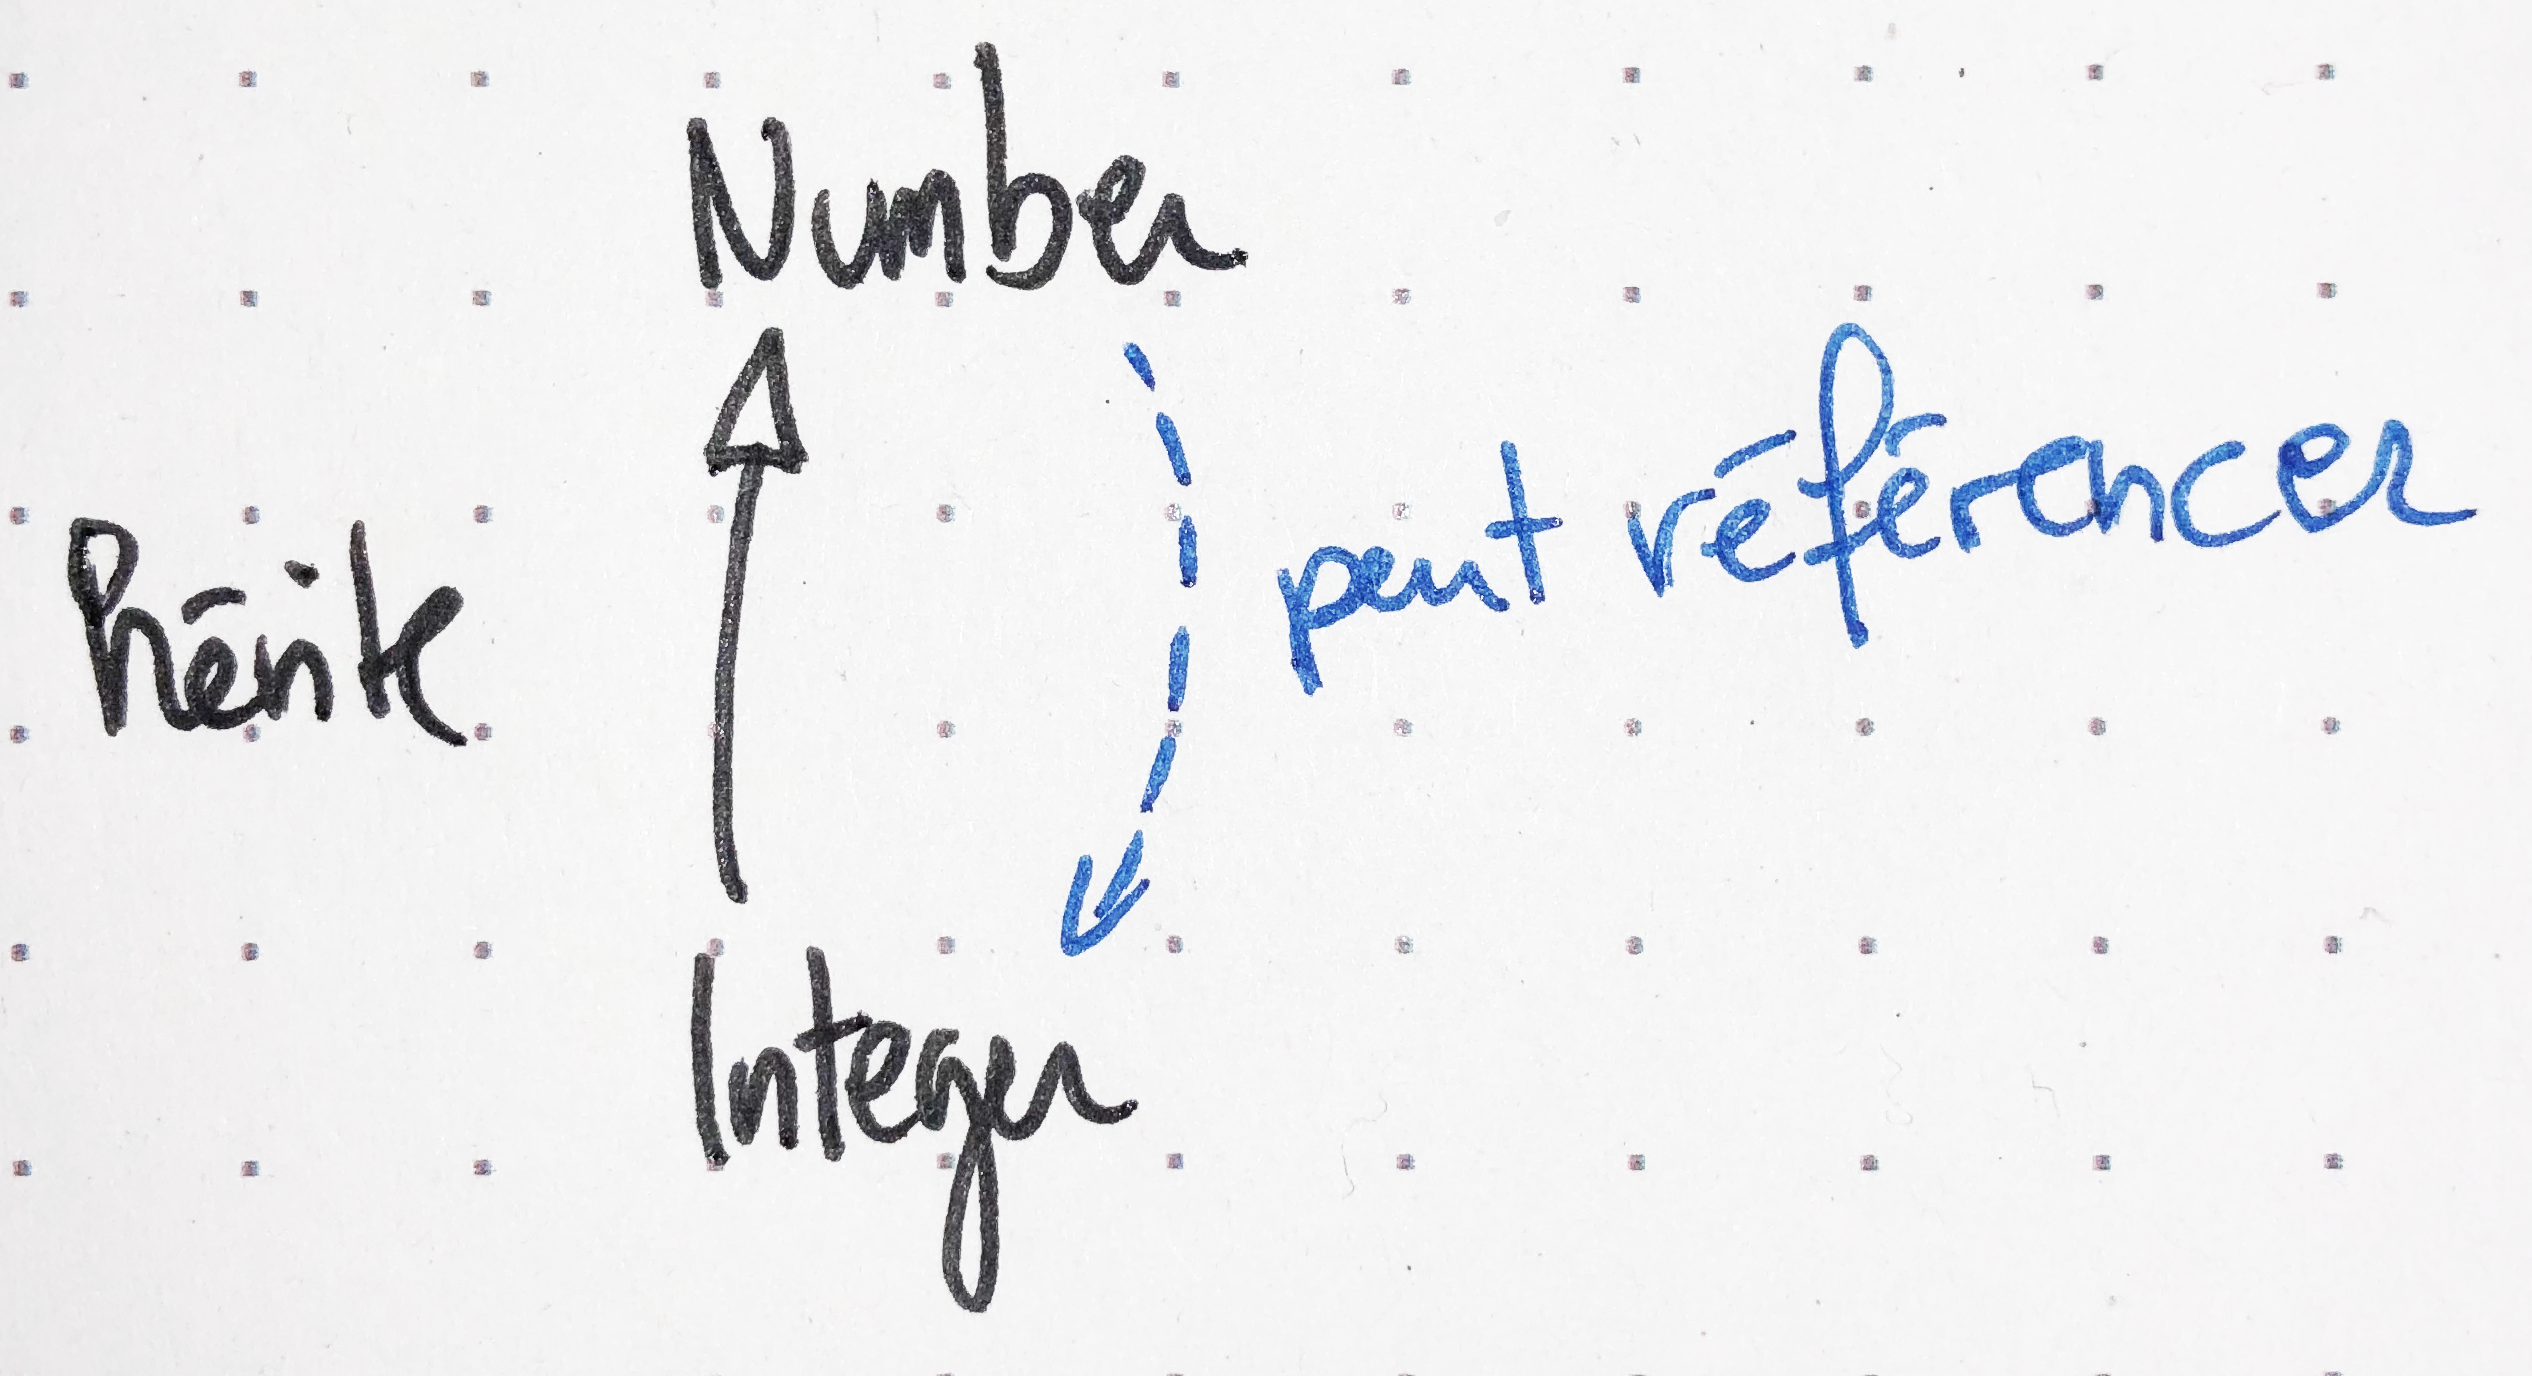 Number
hérite
peut référencer
Integer